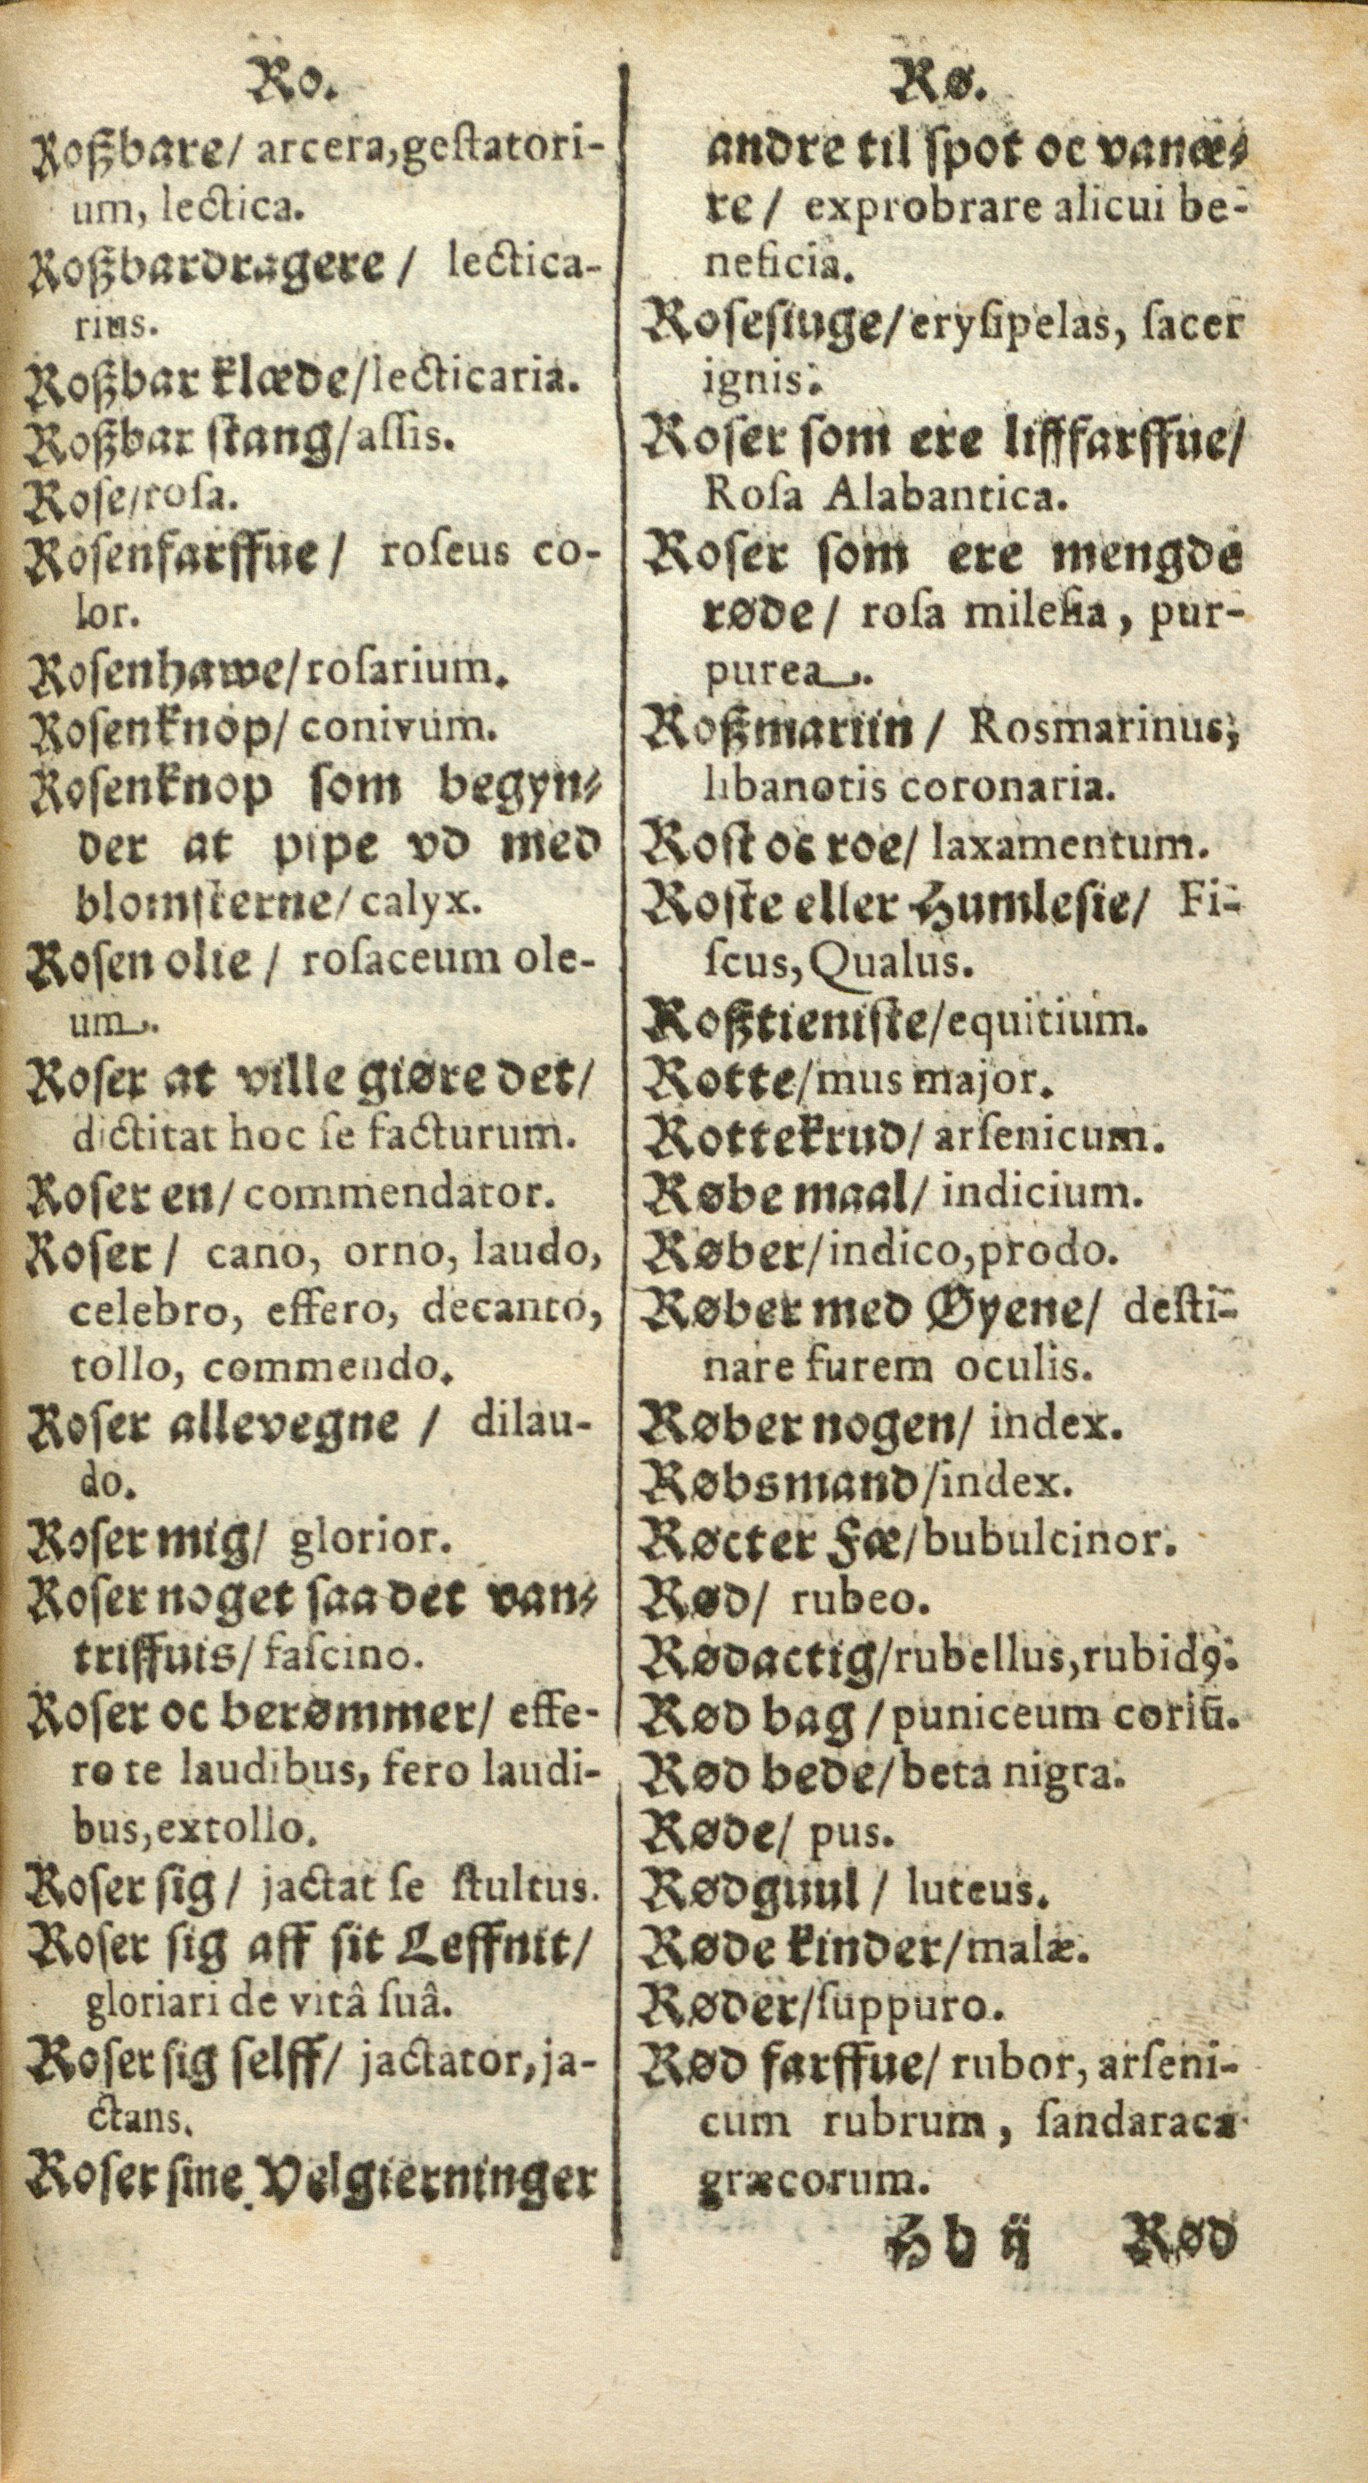 Ro.
Roßbare/ arcera,geſtatori-
um, lectica.
Roßbardragere / lectica-
rius.
Roßbar klæde/lecticaria.
Roßbar ſtang/aſſis.
Roſe/roſa.
Roſenfarffue / roſeus co-
lor.
Roſenhawe/roſarium.
Roſenknop/ conivum.
Roſenknop ſom begyn-
der at pipe vd med
blomſterne/ calyx.
Roſen olie / roſaceum ole-
um.
Roſer at ville giøre det/
dictitat hoc ſe facturum.
Roſer en/ commendator.
Roſer / cano, orno, laudo,
celebro, effero, decanto,
tollo, commendo.
Roſer allevegne / dilau-
do.
Roſer mig/ glorior.
Roſer noget ſaa det van-
triffuis/ faſcino.
Roſer oc berømmer/ effe-
ro te laudibus, fero laudi-
bus,extollo.
Roſer ſig / jactat ſe ſtultus.
Roſer ſig aff ſit Leffnit/
gloriari de vitâ ſuâ.
Roſer ſig ſelff/ jactator, ja-
ctans.
Roſer ſine Velgierninger
Rø.
andre til ſpot oc vanæ-
re / exprobrare alicui be-
neficia.
Roſeſiuge/eryſipelas, ſacer
ignis.
Roſer ſom ere lifffarffue/
Roſa Alabantica.
Roſer ſom ere mengde
røde / roſa mileſia, pur-
purea.
Roßmariin / Rosmarinus,
libanotis coronaria.
Roſt oc roe/ laxamentum.
Roſte eller Humleſie/ Fi-
ſcus, Qualus.
Roßtieniſte/equitium.
Rotte/mus major.
Rottekrud/ arſenicum.
Røbe maal/ indicium.
Røber/indico,prodo.
Røber med Øyene/ deſti-
nare furem oculis.
Røber nogen/ index.
Røbsmand/index.
Røcter Fæ/bubulcinor.
Rød/ rubeo.
Rødactig/rubellus,rubidꝰ.
Rød bag / puniceum coriū.
Rød bede/beta nigra.
Røde/ pus.
Rødguul / luteus.
Røde kinder/malæ.
Røder/ſuppuro.
Rød farffue/ rubor, arſeni-
cum rubrum, ſandaraca
græcorum.
Hh ij Rød